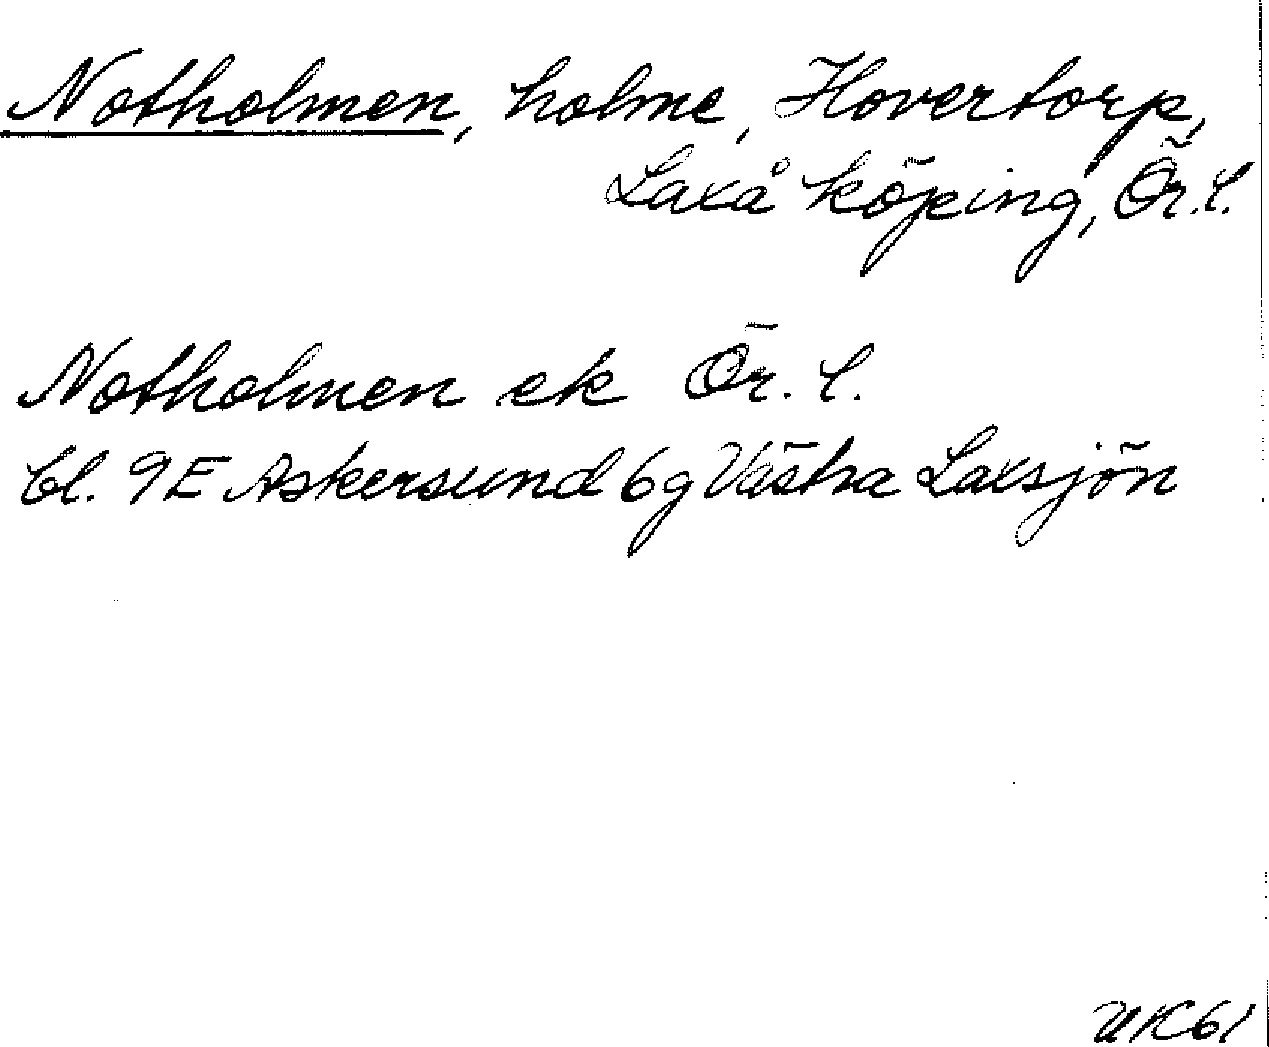 Notholmen, holme, Hovertorp,
Laxå köping, Ör.l.
Notholmen ek Ör. l.
bl. 9E Askersund 6g Västra Laxsjön
UK61